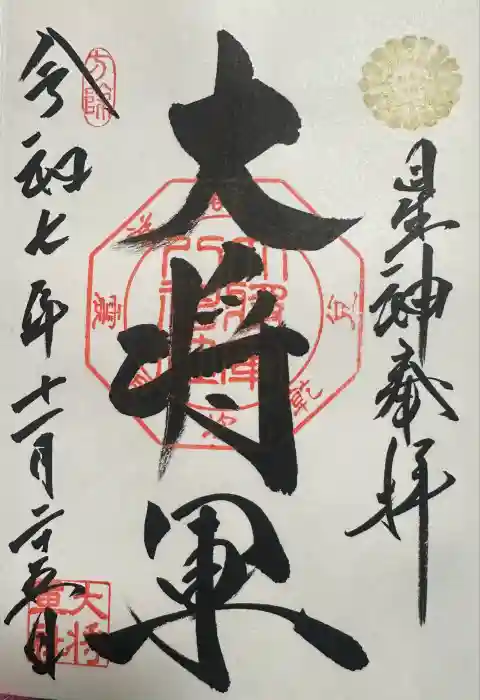 星神奉拝
大将軍
令和七年十一月二十五日
方除
大将
軍社